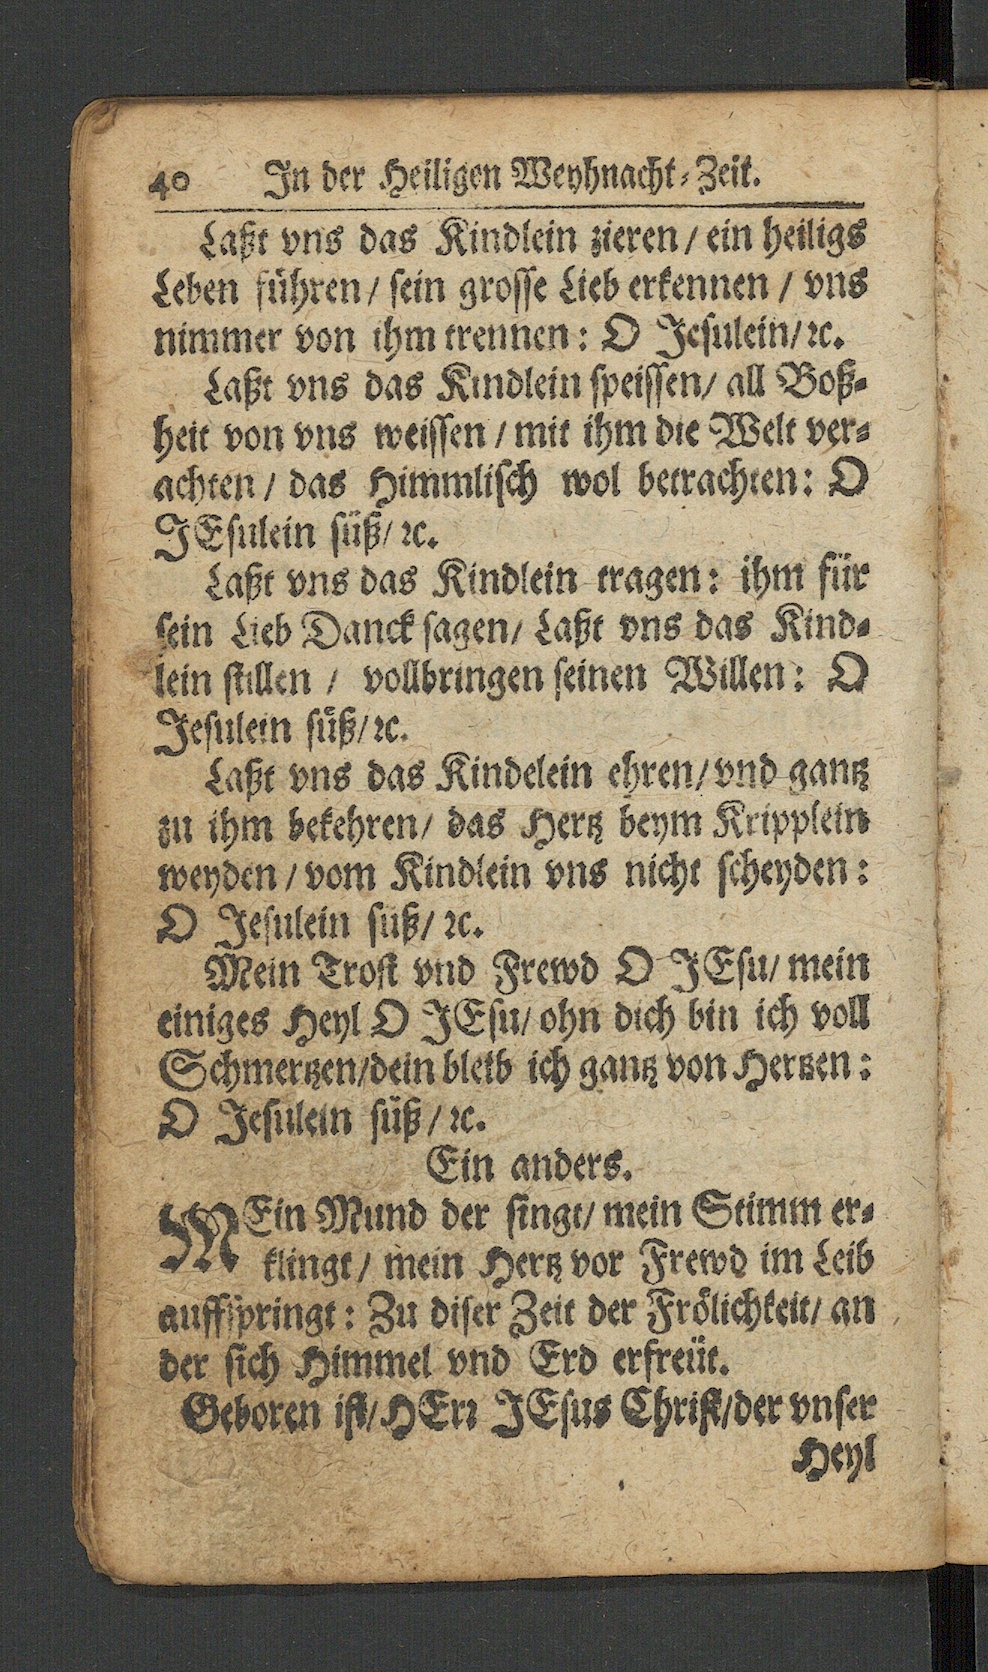 40 In der Heiligen Weyhnacht-Zeit.
Laßt vns das Kindlein zieren / ein heiligs
Leben führen / sein grosse Lieb erkennen / vns
nimmer von ihm trennen: O Jesulein / ꝛc.
Laßt vns das Kindlein speissen / all Boß-
heit von vns weissen / mit ihm die Welt ver-
achten / das Himmlisch wol betrachten: O
JEsulein süß / ꝛc.
Laßt vns das Kindlein tragen: ihm für
sein Lieb Danck sagen / Laßt vns das Kind-
lein stillen / vollbringen seinen Willen: O
Jesulein süß / ꝛc.
Laßt vns das Kindelein ehren / vnd gantz
zu ihm bekehren / das Hertz beym Kripplein
weyden / vom Kindlein vns nicht scheyden:
O Jesulein süß / ꝛc.
Mein Trost vnd Frewd O JEsu / mein
einiges Heyl O JEsu / ohn dich bin ich voll
Schmertzen / dein bleib ich gantz von Hertzen:
O Jesulein süß / ꝛc.
Ein anders.
MEin Mund der singt / mein Stimm er-
klingt / mein Hertz vor Frewd im Leib
auffspringt: Zu diser Zeit der Frölichkeit / an
der sich Himmel vnd Erd erfreüt.
Geboren ist / HErꝛ JEsus Christ / der vnser
Heyl